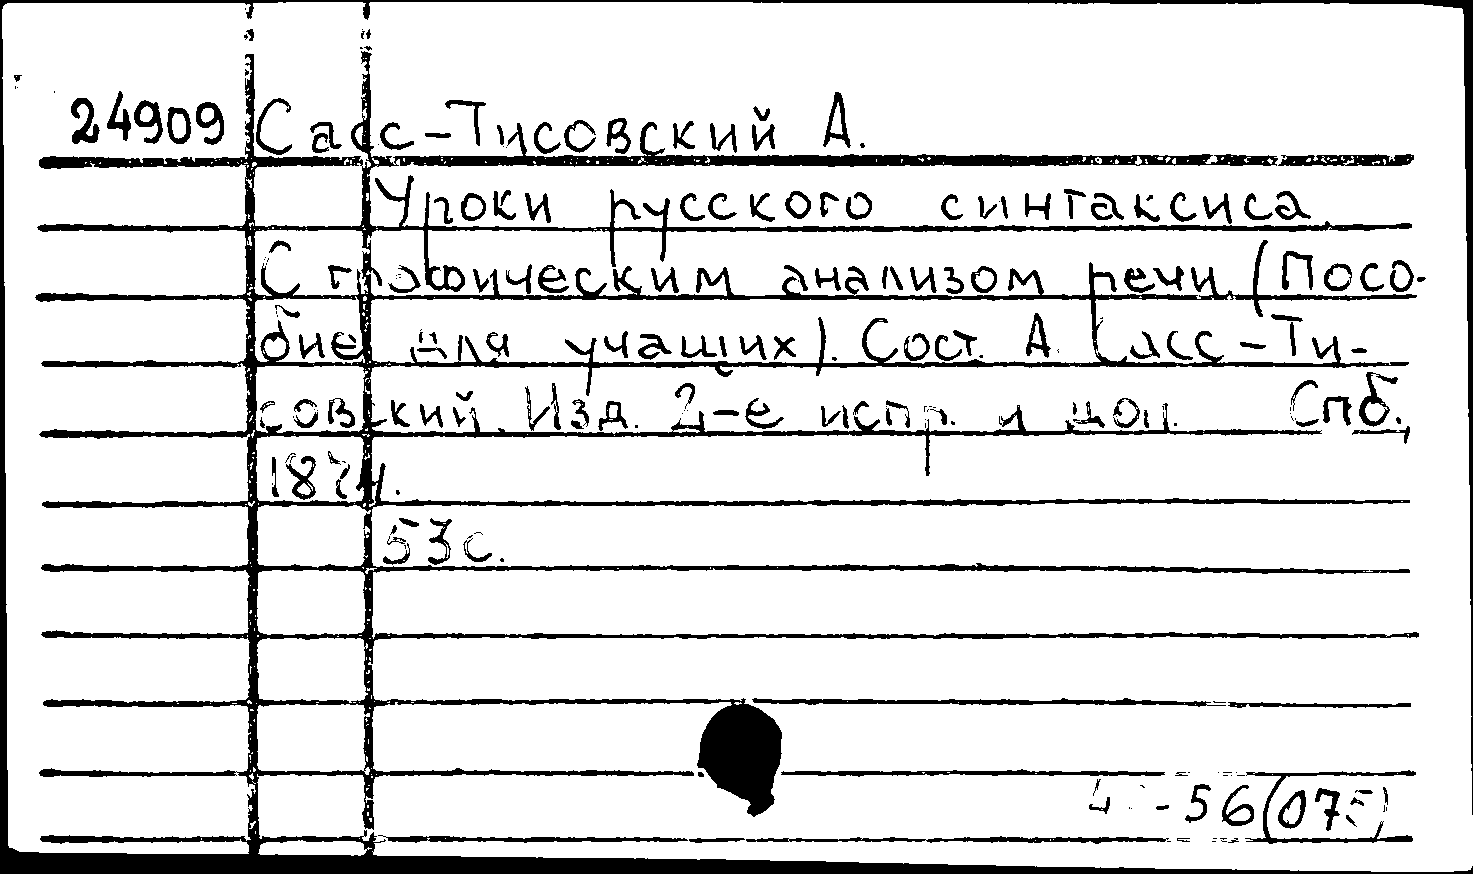 24909 Сасс-Тисовский А.
Уроки русского синтаксиса.
С графическим анализом речи. (Посо-
бие для учащих). Сост. А. Сасс-Ти-
совский. Изд. 2-е испр. и доп. Спб.,
1874.
53 с.